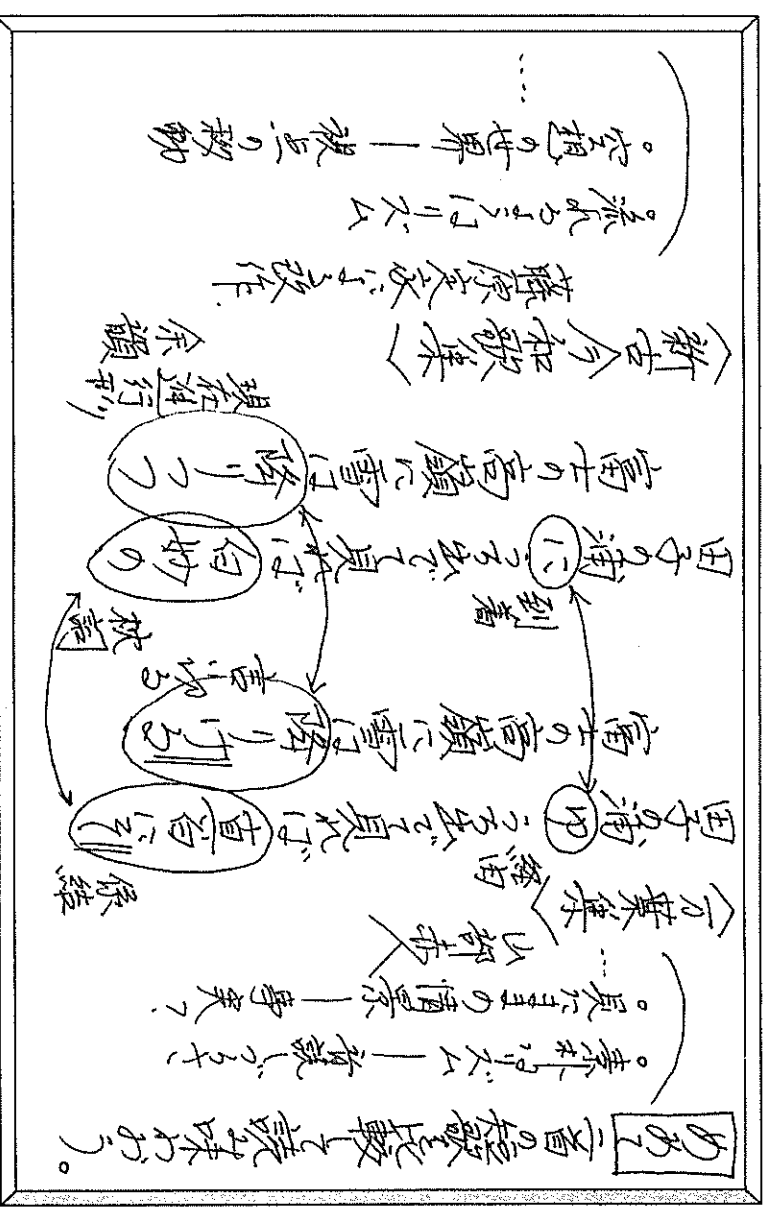 めあて 二首の短歌を比較して読み味わおう。
・素朴なリズム―音読しづらさ
・見たままの情景―事実？
…
山部赤人
〈万葉集〉
経由
係結
田子の浦ゆうち出でて見れば真白にぞ
富士の高嶺に雪は降りける
言い切る
到着
枕詞
田子の浦にうち出でて見れば白妙の
富士の高嶺に雪は降りつつ
現在進行形
余韻
〈新古今和歌集〉
藤原定家による改作
・流れるようなリズム
・空想の世界―視点の移動
…